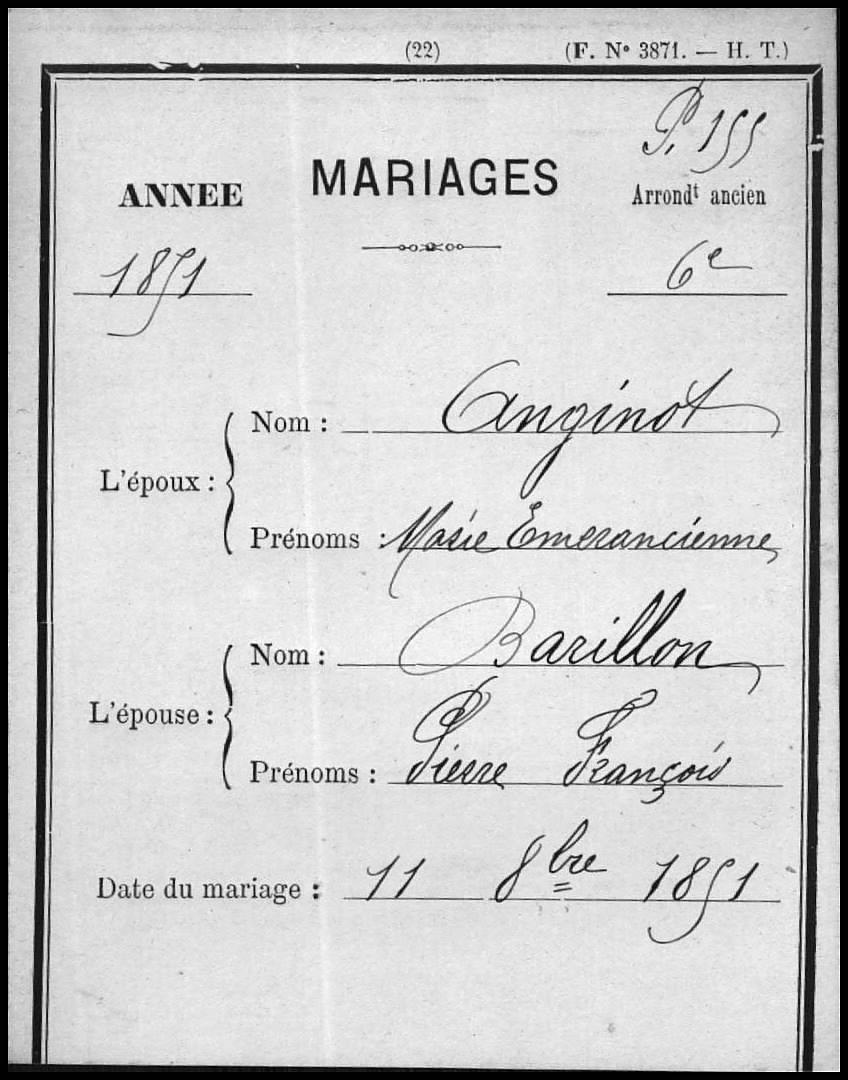 (22) (F. N° 3871. — H. T.)
P. 155
ANNEE MARIAGES Arrondt ancien
1851 6e
Nom : Anginot
L'époux :
Prénoms : Marie Emerancienne
Nom : Barillon
L'épouse :
Prénoms : Pierre François
Date du mariage : 11 8bre 1851